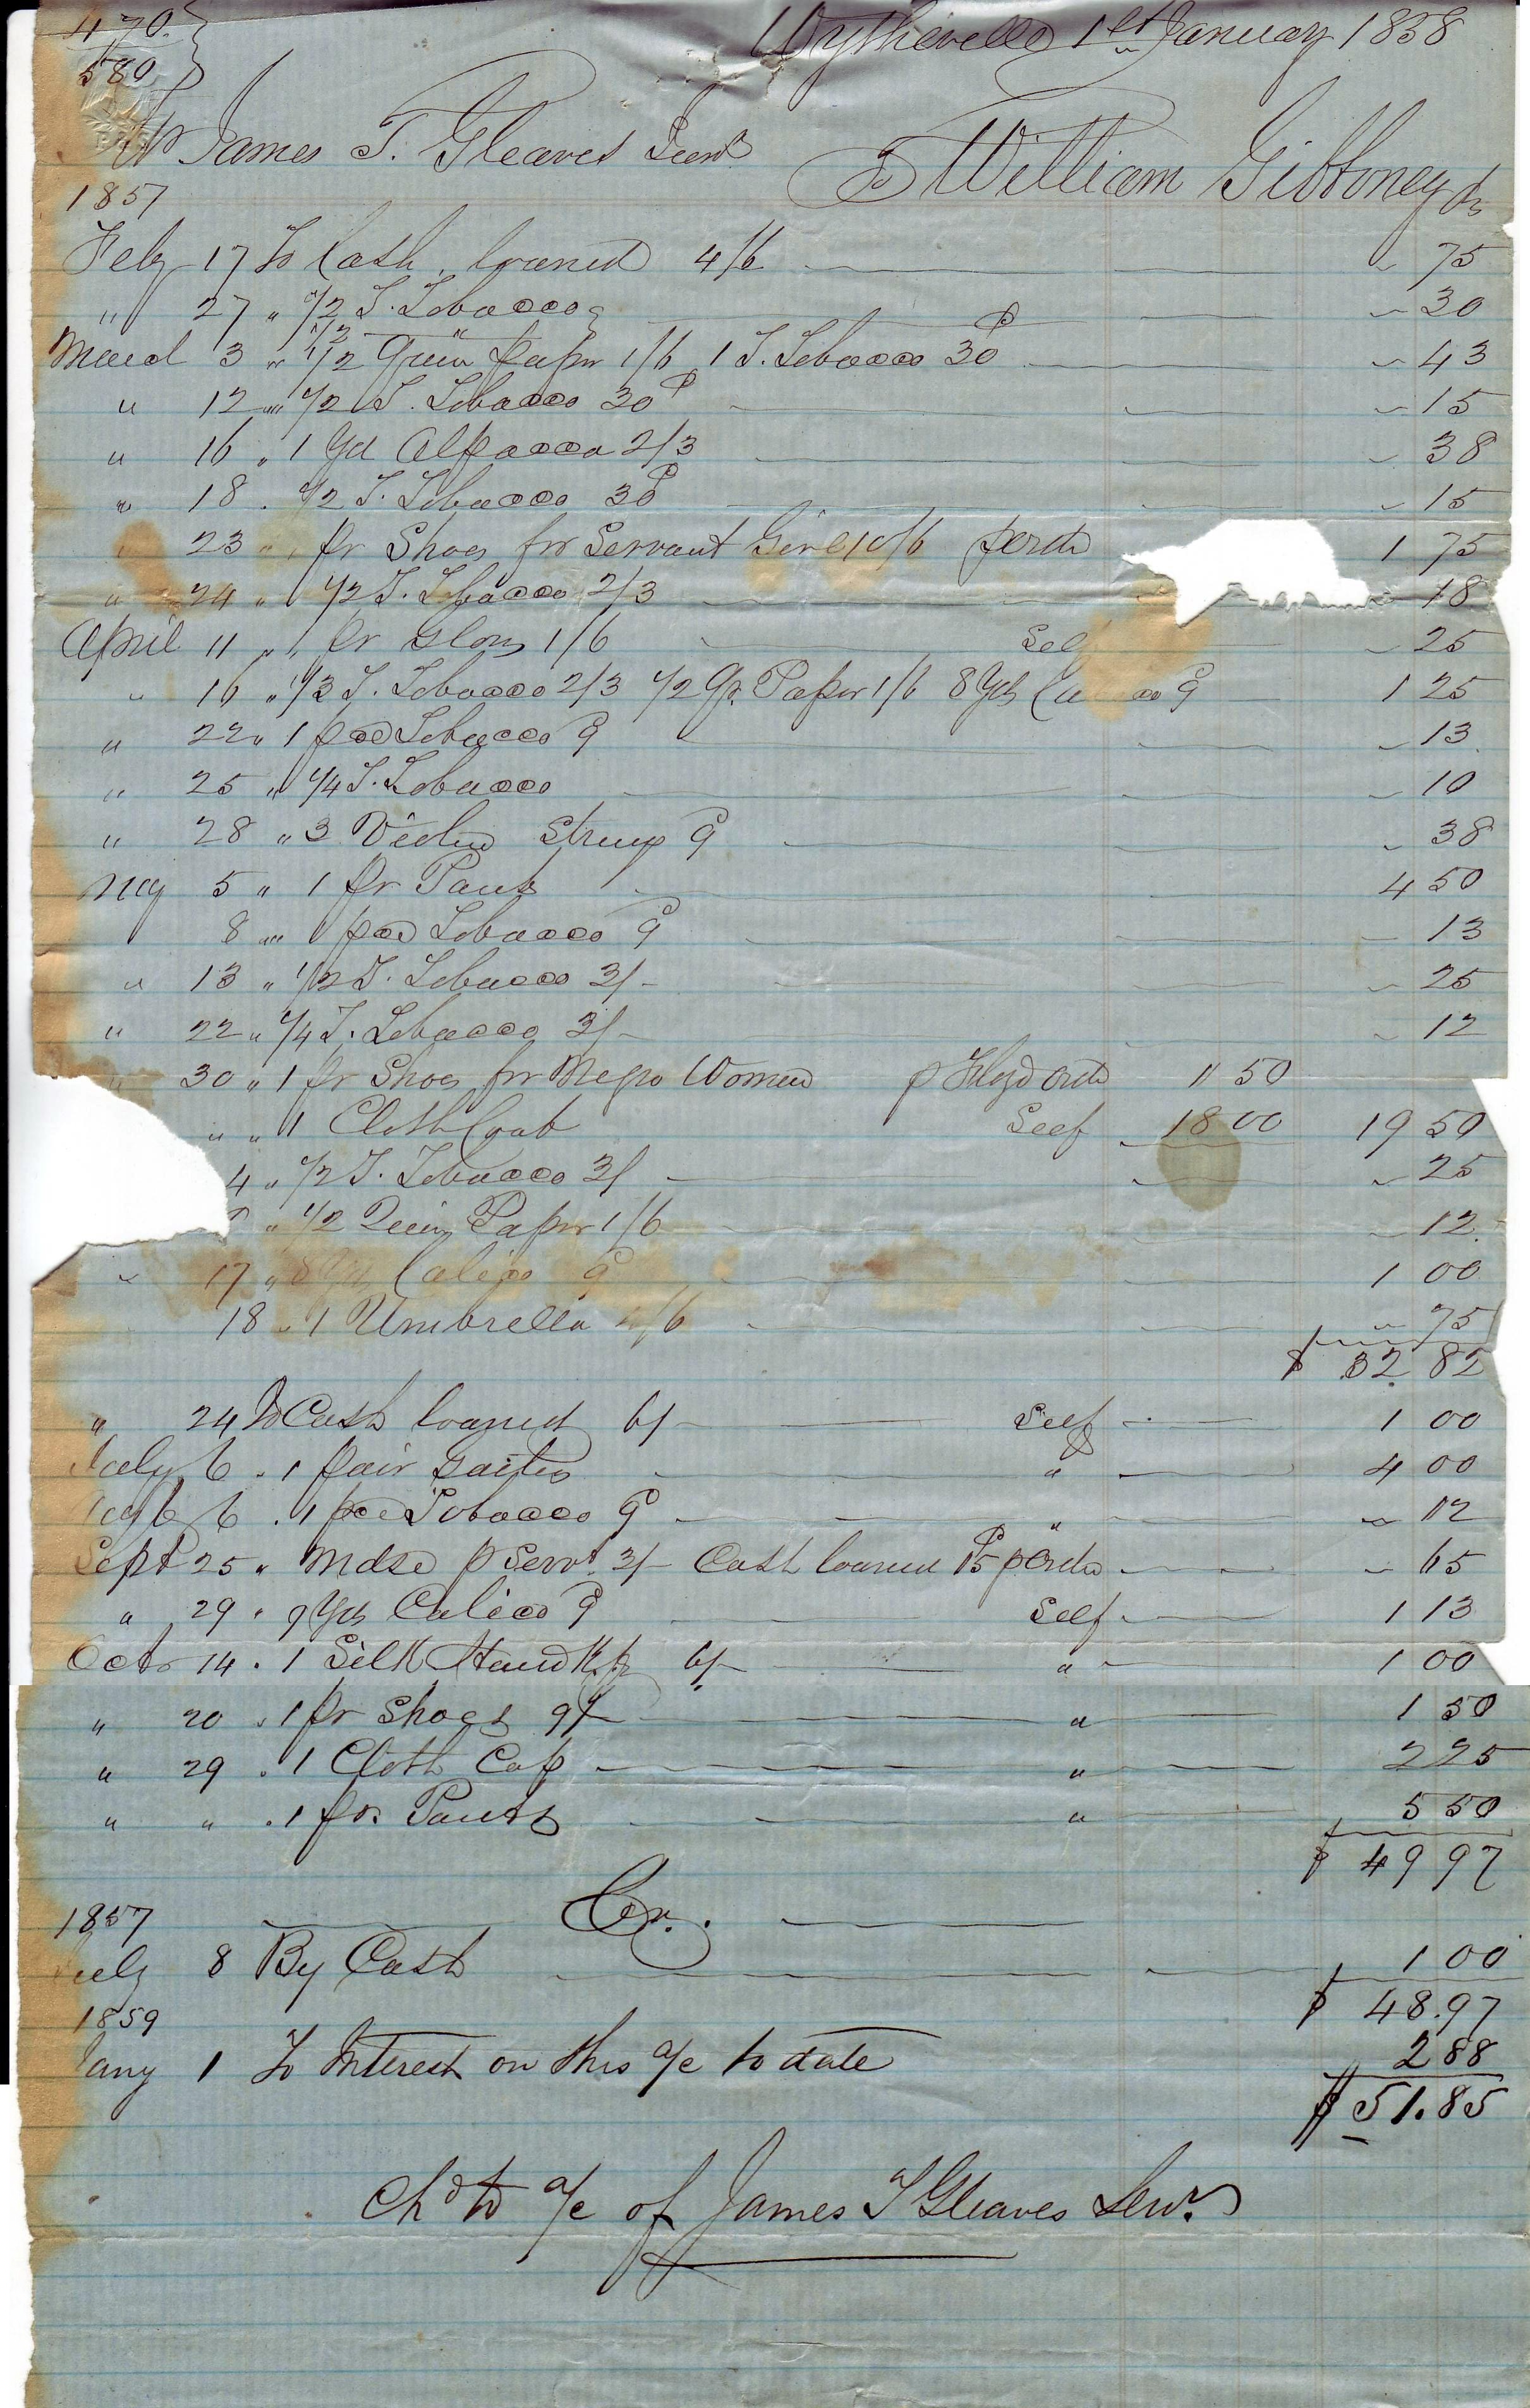 470.
580
Wytheville 1st January 1858
Mr James T. Gleaves Senr
To William Gibboney Dr
1857
Feby 17 To Cash loaned 4/6 75
" 27 " 1/2 T. Tobacco 30
March 3 " 1/2 Quire paper 1/6 1 T. Tobacco 30 43
" 12 " 1/2 T. Tobacco 30 15
" 16 " 1 yd Alpacca 2/3 38
" 18 " 1/2 T. Tobacco 30 15
23 " 1 pr Shoes for Servant Girl 10/6 1 75
" 24 " 1/2 T. Tobacco 2/3 18
April 11 " 1 pr Gloves 1/6 Self 25
" 16 " 1/3 T. Tobacco 2/3 1/2 Qr Paper 1/6 8 yds Calico 9 1 25
" 22 " 1 Tobacco 9 13
" 25 " 1/4 T. Tobacco 10
" 28 " 3 Violin Strings 9 38
May 5 " 1 pr Pants 4 50
8 " 1 Tobacco 9 13
" 13 " 1/2 T. Tobacco 3/- 25
" 22 " 1/4 T. Tobacco 3/- 12
30 " 1 pr Shoes for Negro Women p Order 1 50
" " 1 Cloth Coat Self 18 00 19 50
4 " 1/2 T. Tobacco 3/ 25
" 1/2 Quire Paper 1/6 12
" 17 " 8 yds Calico 9 1 00
18 " 1 Umbrella 4/6 75
$ 32 82
" 24 To Cash loaned 6/- Self 1 00
July 6 " 1 pair Gaiters " 4 00
6 " 1 Tobacco 9 " 12
Sept 25 " Mdse p Servt 3/- Cash loaned 15 p Order 65
" 29 " 9 yds Calico 9 Self 1 13
Octo 14 " 1 Silk Handkf 6/- " 1 00
" 20 " 1 pr Shoes 9/- " 1 50
" 29 " 1 Cloth Cap " 2 25
" " " 1 pr Pants " 5 50
$ 49 97
Cr.
1857
July 8 By Cash 1 00
$ 48.97
1859
Jany 1 To Interest on this a/c to date 2 88
$ 51.85
Chd to a/c of James T Gleaves Senr.